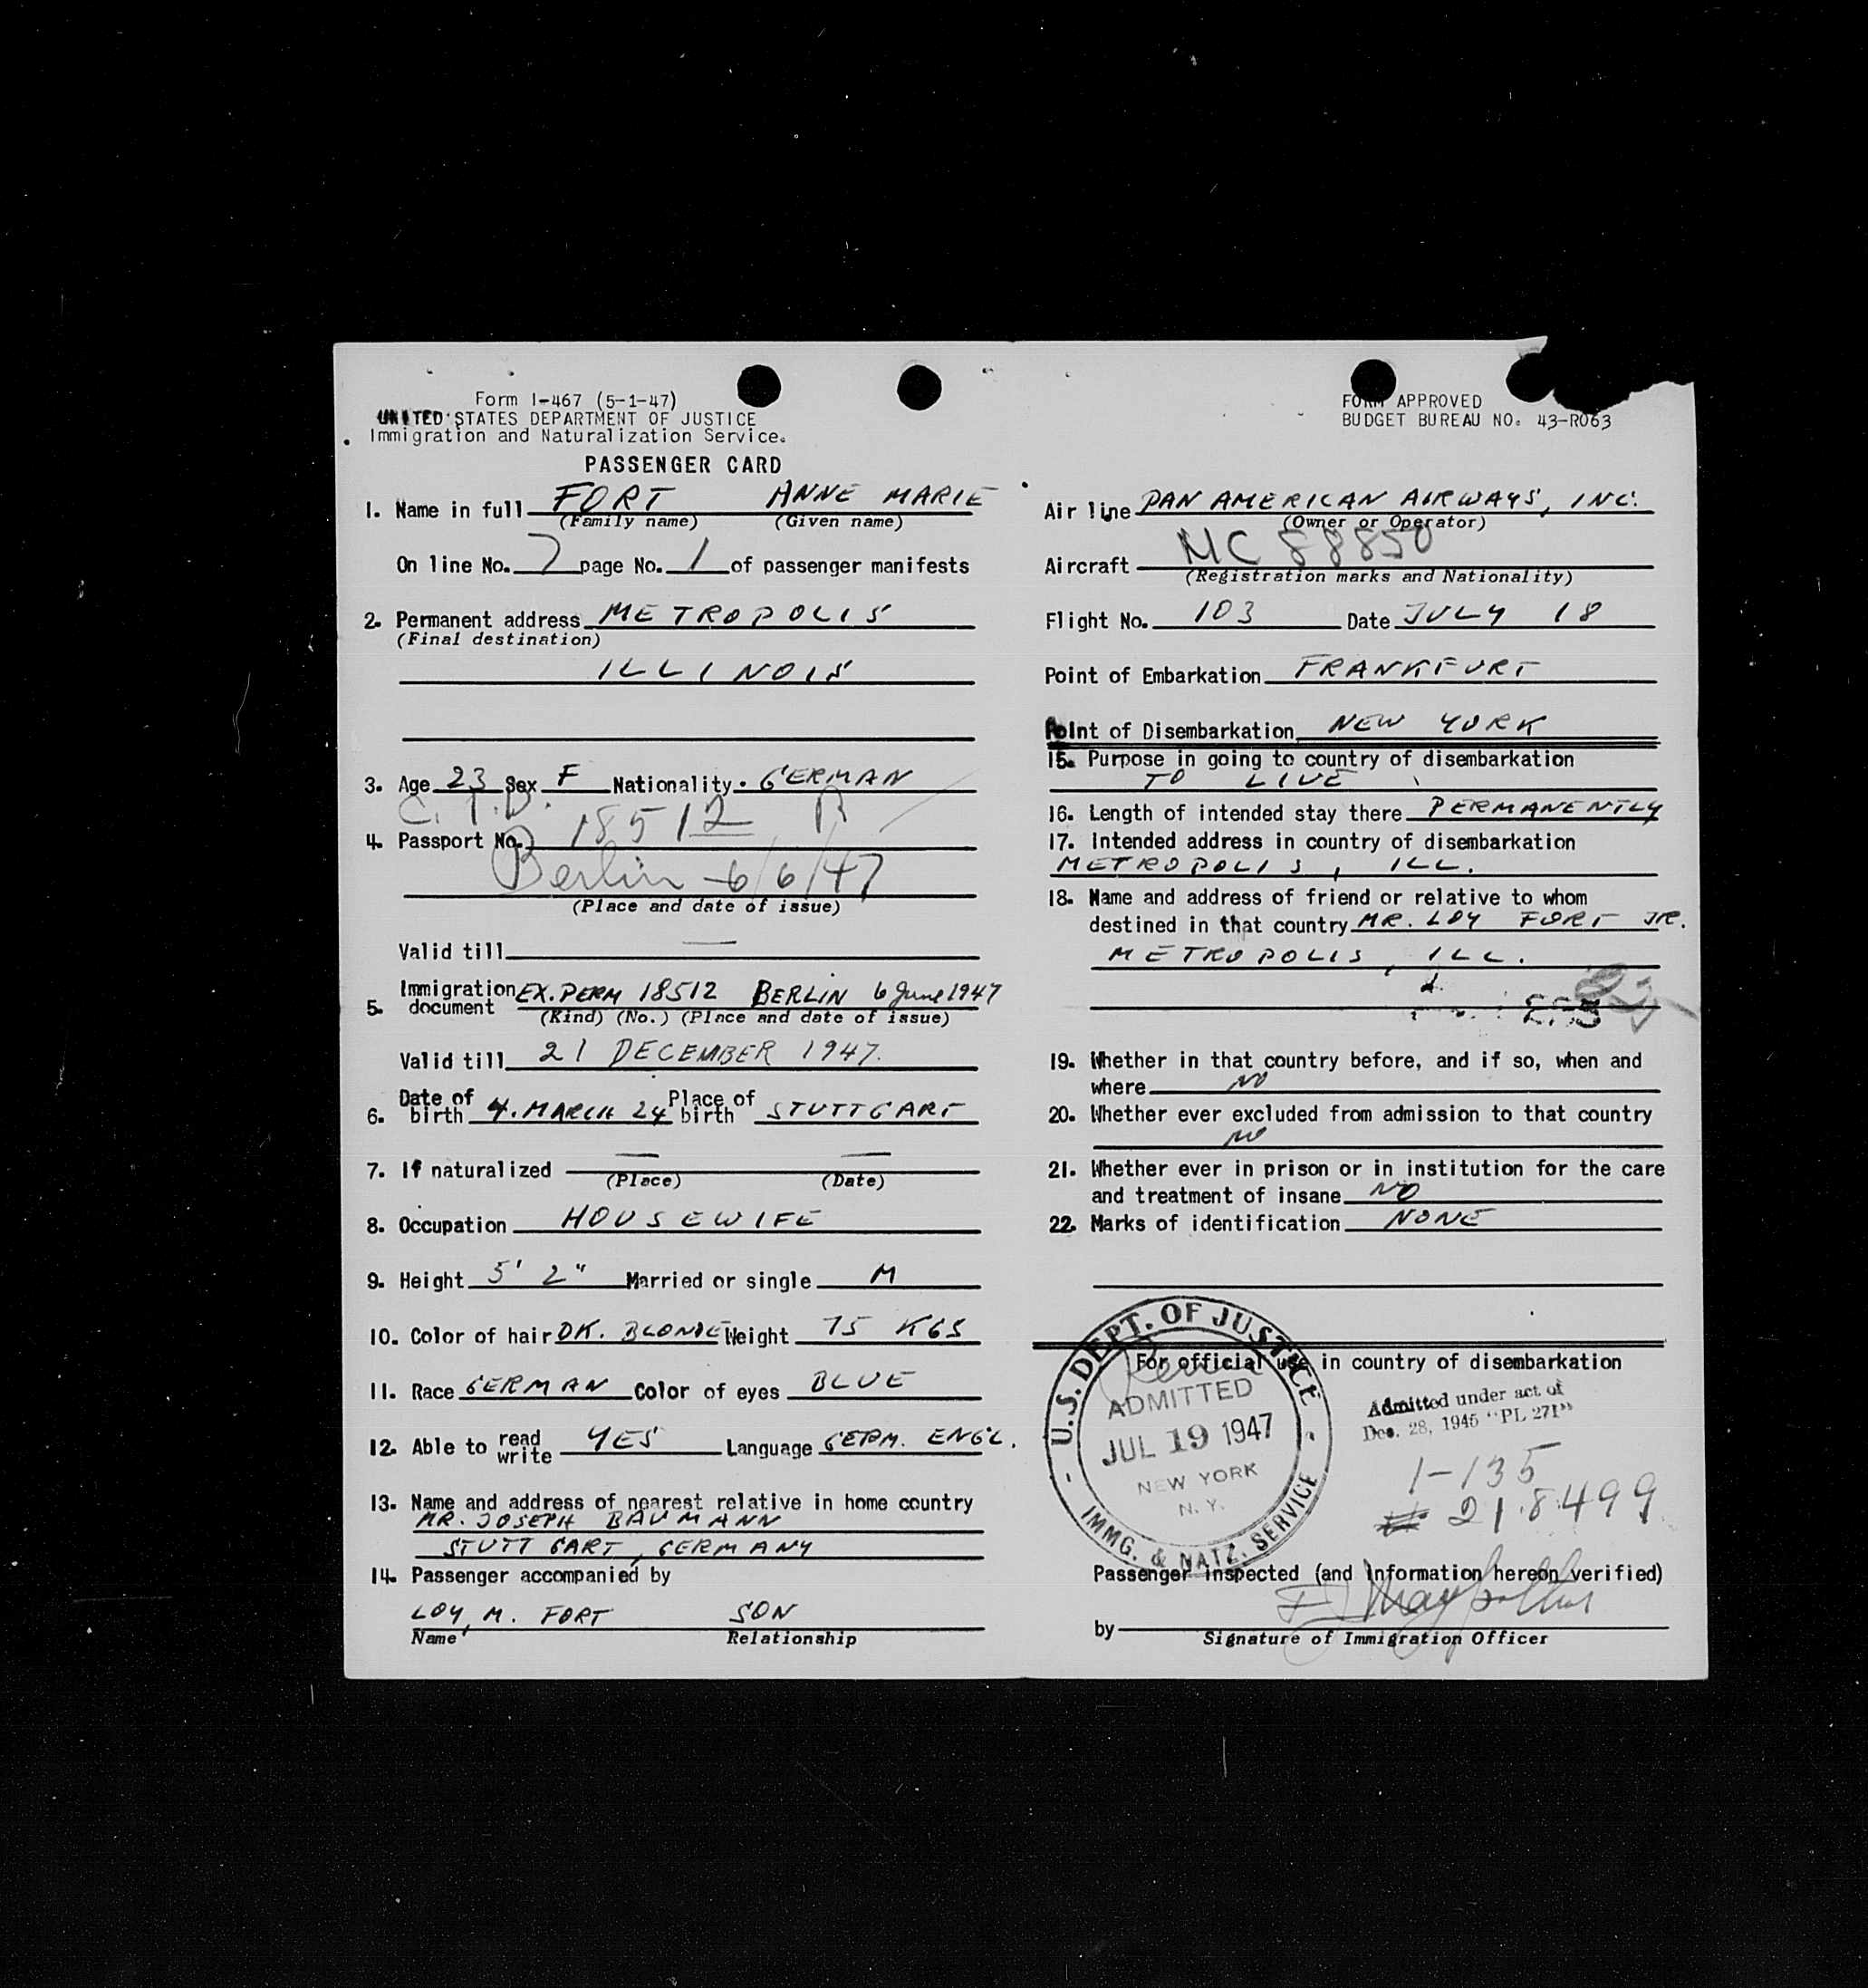 Form I-467 (5-1-47)
UNITED STATES DEPARTMENT OF JUSTICE
Immigration and Naturalization Service.
PASSENGER CARD
1. Name in full FORT ANNE MARIE
(Family name) (Given name)
On line No. 7 page No. 1 of passenger manifests
2. Permanent address METROPOLIS
(Final destination)
ILLINOIS
3. Age 23 Sex F Nationality GERMAN
C. I. D.
4. Passport No. 18512
Berlin - 6/6/47
(Place and date of issue)
Valid till —
5. Immigration document EX. PERM 18512 BERLIN 6 June 1947
(Kind) (No.) (Place and date of issue)
Valid till 21 DECEMBER 1947.
6. Date of birth 4. MARCH 24 Place of birth STUTTGART
7. If naturalized — —
(Place) (Date)
8. Occupation HOUSEWIFE
9. Height 5' 2" Married or single M
10. Color of hair DK. BLONDE Weight 75 KGS
11. Race GERMAN Color of eyes BLUE
12. Able to read write YES Language GERM. ENGL.
13. Name and address of nearest relative in home country
MR. JOSEPH BAUMANN
STUTTGART, GERMANY
14. Passenger accompanied by
LOY, M. FORT SON
Name Relationship
FORM APPROVED
BUDGET BUREAU NO. 43-R063
Air line PAN AMERICAN AIRWAYS, INC.
(Owner or Operator)
Aircraft NC 88850
(Registration marks and Nationality)
Flight No. 103 Date JULY 18
Point of Embarkation FRANKFURT
Point of Disembarkation NEW YORK
15. Purpose in going to country of disembarkation
TO LIVE
16. Length of intended stay there PERMANENTLY
17. Intended address in country of disembarkation
METROPOLIS, ILL.
18. Name and address of friend or relative to whom
destined in that country MR. LOY FORT JR.
METROPOLIS, ILL.
19. Whether in that country before, and if so, when and
where NO
20. Whether ever excluded from admission to that country
NO
21. Whether ever in prison or in institution for the care
and treatment of insane NO
22. Marks of identification NONE
For official use in country of disembarkation
U.S. DEPT. OF JUSTICE
ADMITTED
JUL 19 1947
NEW YORK
N. Y.
IMMG. & NATZ. SERVICE
Admitted under act of
Dec. 28, 1945 "PL 271"
1-135
# 218499
Passenger inspected (and information hereon verified)
by
Signature of Immigration Officer